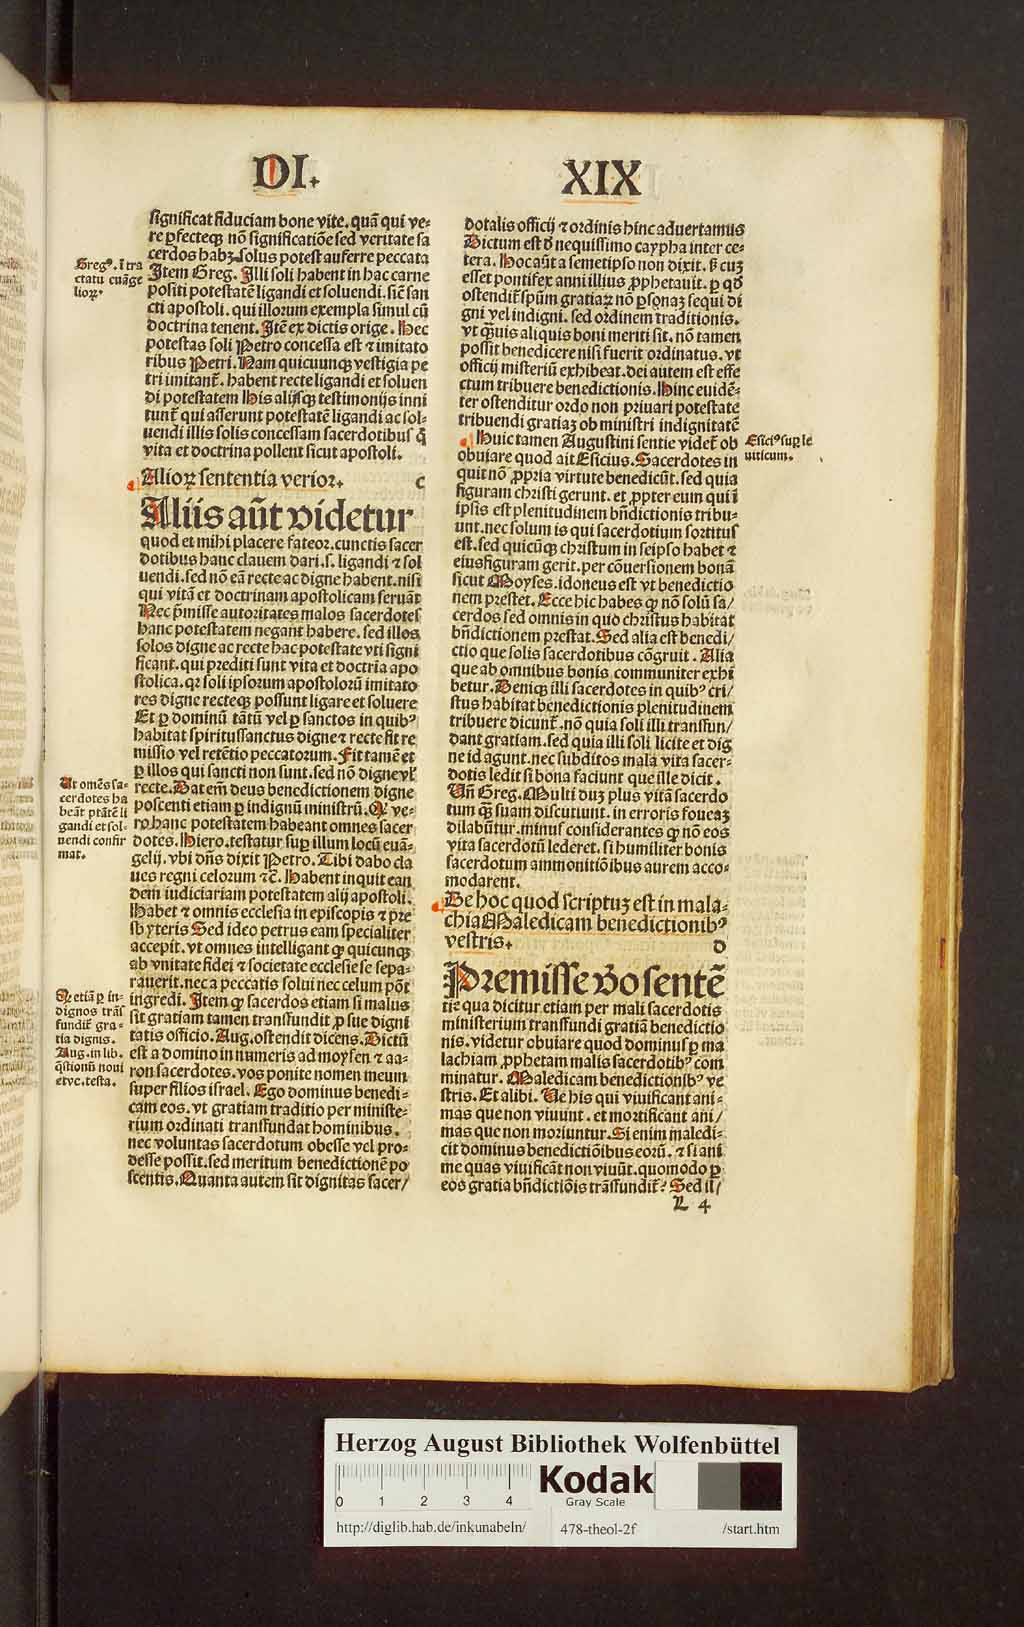 DI.
XIX
significat fiduciam bone vite. quã qui ve⸗
re ꝑfecteqꝫ nõ significatiõe sed veritate sa
cerdos habꝫ. solus potest auferre peccata
Item Greg. Illi soli habent in hac carne
positi potestatẽ ligandi et soluendi. siẽ san
cti apostoli. qui illorum exempla simul cũ
doctrina tenent. Itẽ ex dictis orige. Hec
potestas soli Petro concessa est ⁊ imitato
ribus Petri. Nam quicunqꝫ vestigia pe
tri imitant̃. habent recte ligandi et soluen
di potestatem His alijsqꝫ testimonijs inni
tunt̃ qui asserunt potestatẽ ligandi ac sol⸗
uendi illis solis concessam sacerdotibus q̃
vita et doctrina pollent sicut apostoli.
Alioꝝ sententia verior. C
Aliis aũt videtur
quod et mihi placere fateor. cunctis sacer
dotibus hanc clauem dari. s. ligandi ⁊ sol
uendi. sed nõ eã recte ac digne habent. nisi
qui vitã et doctrinam apostolicam seruãt
Nec p̃misse autoritates malos sacerdotes
hanc potestatem negant habere. sed illos
solos digne ac recte hac potestate vti signi
ficant. qui prediti sunt vita et doctria apo
stolica. qꝛ soli ipsorum apostolorũ imitato
res digne recteqꝫ possunt ligare et soluere
Et ꝑ dominũ tãtũ vel ꝑ sanctos in quibꝰ
habitat spiritussanctus digne ⁊ recte fit re
missio vel retẽtio peccatorum. Fit tamẽ et
ꝑ illos qui sancti non sunt. sed nõ digne vl̃
recte. Dat em̃ deus benedictionem digne
poscenti etiam ꝑ indignũ ministrũ. Qꝙ ve⸗
ro hanc potestatem habeant omnes sacer
dotes. Hiero. testatur suꝑ illum locũ euã⸗
gelij. vbi dñs dixit Petro. Tibi dabo cla
ues regni celorum ⁊c̃. Habent inquit ean
dem iudiciariam potestatem alij apostoli.
Habet ⁊ omnis ecclesia in episcopis ⁊ pre
sbyteris Sed ideo petrus eam specialiter
accepit. vt omnes intelligant ꝙ quicunqꝫ
ab vnitate fidei ⁊ societate ecclesie se sepa⸗
rauerit. nec a peccatis solui nec celum põt
ingredi. Item ꝙ sacerdos etiam si malus
sit gratiam tamen transfundit ꝑ sue digni
tatis officio. Aug. ostendit dicens. Dictũ
est a domino in numeris ad moysen ⁊ aa⸗
ron sacerdotes. vos ponite nomen meum
super filios israel. Ego dominus benedi⸗
cam eos. vt gratiam traditio per ministe⸗
rium ordinati transfundat hominibus.
nec voluntas sacerdotum obesse vel pro⸗
desse possit. sed meritum benedictionẽ po
scentis. Quanta autem sit dignitas sacer/
Gregꝰ. ĩ tra
ctatu euãge
lioꝝ.
Ut omẽs sa⸗
cerdotes ha
beãt ptãtẽ li
gandi et sol⸗
uendi confir
mat.
Qꝙ etiã ꝑ in⸗
dignos trãs
fundit̃ gra⸗
tia dignis.
Aug. in lib.
q̃stionũ noui
et vc. testa.
dotalis officij ⁊ ordinis hinc aduertamus
Dictum est d̃ nequissimo caypha inter ce⸗
tera. Hoc aũt a semetipso non dixit. ß cuꝫ
esset pontifex anni illius ꝓphetauit. ꝑ qđ
ostendit̃ spũm gratiaꝝ nõ ꝑsonaꝫ sequi di
gni vel indigni. sed ordinem traditionis.
vt q̃uis aliquis boni meriti sit. nõ tamen
possit benedicere nisi fuerit ordinatus. vt
officij misteriũ exhibeat. dei autem est effe
ctum tribuere benedictionis. Hinc euidẽ⸗
ter ostenditur ordo non priuari potestate
tribuendi gratiaꝫ ob ministri indignitatẽ
Huic tamen Augustini sentie videt̃ ob
obuiare quod ait Esicius. Sacerdotes in
quit nõ ꝓpria virtute benedicũt. sed quia
figuram christi gerunt. et ꝓpter eum qui ĩ
ipsis est plenitudinem bñdictionis tribu⸗
unt. nec solum is qui sacerdotium sortitus
est. sed quicũqꝫ christum in seipso habet ⁊
eius figuram gerit. per cõuersionem bonã
sicut Moyses. idoneus est vt benedictio
nem prestet. Ecce hic habes ꝙ nõ solũ sa/
cerdos sed omnis in quo christus habitat
bñdictionem prestat. Sed alia est benedi/
ctio que solis sacerdotibus cõgruit. Alia
que ab omnibus bonis communiter exhi
betur. Deniqꝫ illi sacerdotes in quibꝰ cri/
stus habitat benedictionis plenitudinem
tribuere dicunt̃. nõ quia soli illi transfun/
dant gratiam. sed quia illi soli licite et dig
ne id agunt. nec subditos mala vita sacer⸗
dotis ledit si bona faciunt que ille dicit.
Uñ Greg. Multi duꝫ plus vitã sacerdo
tum q̃ suam discutiunt. in erroris foueaꝫ
dilabũtur. minus considerantes ꝙ nõ eos
vita sacerdotũ lederet. si humiliter bonis
sacerdotum ammonitiõibus aurem acco⸗
modarent.
De hoc quod scriptuꝫ est in mala⸗
chia Maledicam benedictionibꝰ
vestris. D
Premisse ṽo sentẽ
tie qua dicitur etiam per mali sacerdotis
ministerium transfundi gratiã benedictio
nis. videtur obuiare quod dominus ꝑ ma
lachiam ꝓphetam malis sacerdotibꝰ com
minatur. Maledicam benedictionibꝰ ve
stris. Et alibi. Ve his qui viuificant ani⸗
mas que non viuunt. et mortificant ani/
mas que non moriuntur. Si enim maledi⸗
cit dominus benedictiõibus eorũ. ⁊ si ani
me quas viuificãt non viuũt. quomodo ꝑ
eos gratia bñdictiõis trãsfundit̃? Sed il/
L 4
Esiciꝰ suꝑ le
uiticum.
Herzog August Bibliothek Wolfenbüttel
0 1 2 3 4
Kodak
Gray Scale
http://diglib.hab.de/inkunabeln/ 478-theol-2f /start.htm